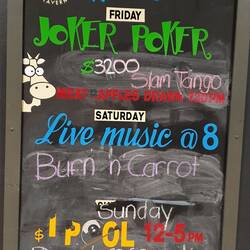 TAVERN
FRIDAY
JOKER POKER
$3200
Slam Tango
MEAT APPLES DRAWN
SATURDAY
Live music @ 8
Burn 'n' Carrot
Sunday
$1 POOL 12-5PM